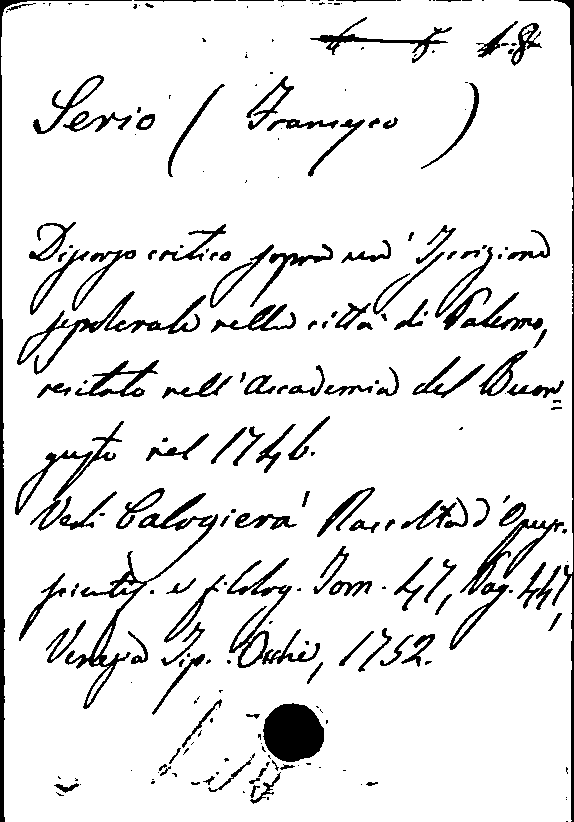 1. 8.
Serio ( Francesco )
Discorso critico sopra un' Iscrizione
sepolcrale nella città di Palermo,
recitato nell' Accademia del Buon
gusto nel 1746.
Vedi Calogierà Raccolta d'Opusc.
scientif. e filolog. Tom. 47, Pag. 447,
Venezia Tip. Occhi, 1752.